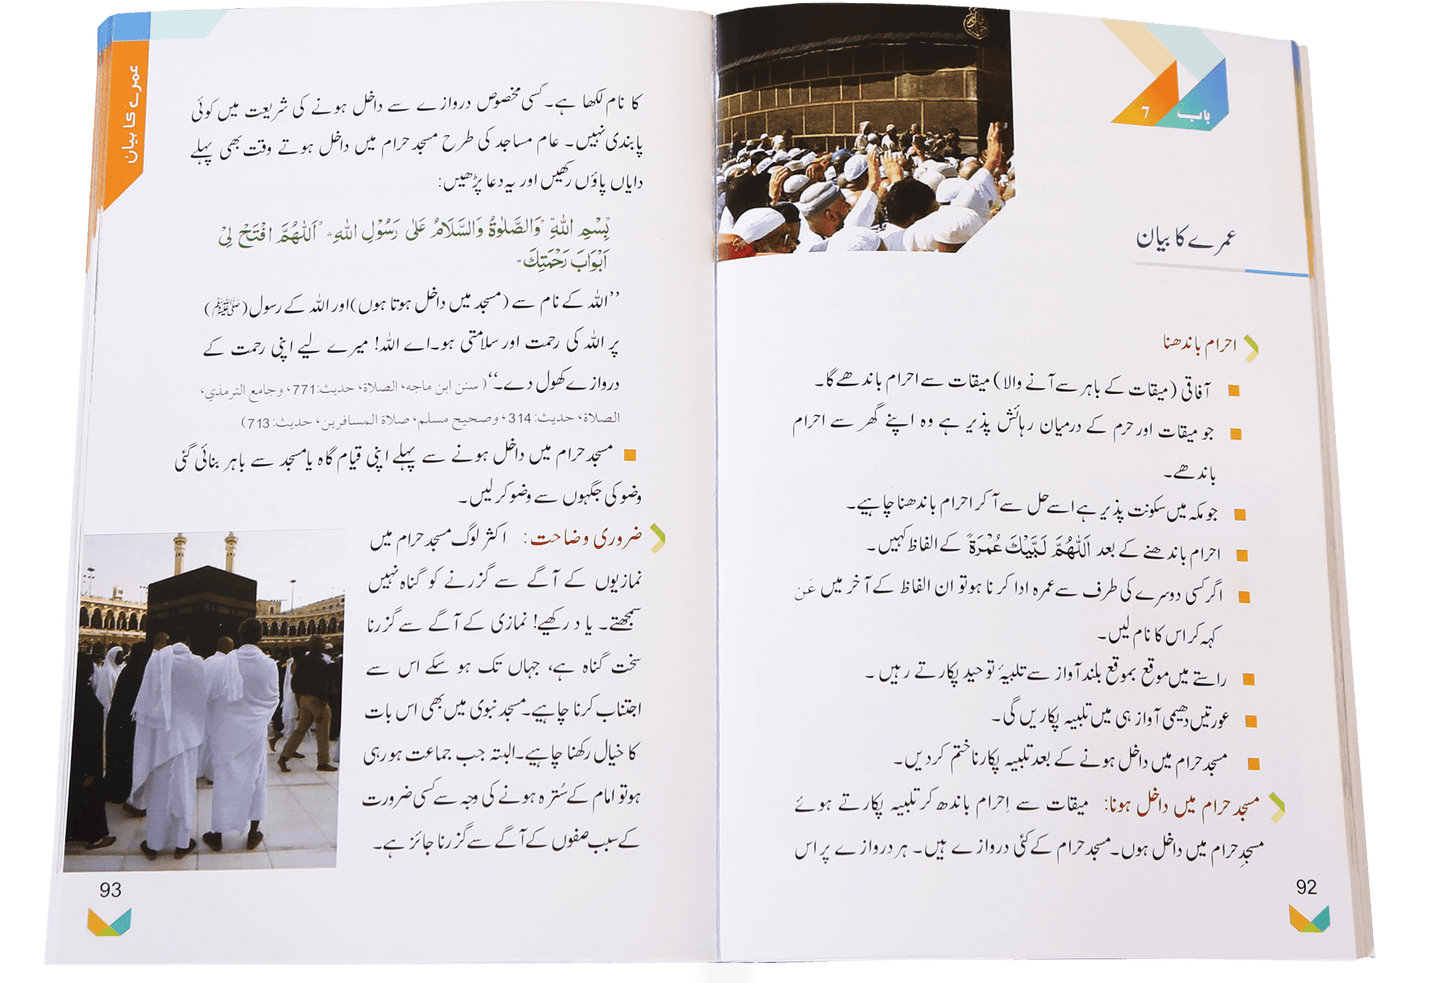 باب 7
عمرے کا بیان
احرام باندھنا
آفاقی (میقات کے باہر سے آنے والا) میقات سے احرام باندھے گا۔
جو میقات اور حرم کے درمیان رہائش پذیر ہے وہ اپنے گھر سے احرام
باندھے۔
جو مکہ میں سکونت پذیر ہے اسے حل سے آ کر احرام باندھنا چاہیے۔
احرام باندھنے کے بعد اَللّٰهُمَّ لَبَّيْكَ عُمْرَةً کے الفاظ کہیں۔
اگر کسی دوسرے کی طرف سے عمرہ ادا کرنا ہو تو ان الفاظ کے آخر میں عَنْ
کہہ کر اس کا نام لیں۔
راستے میں موقع بموقع بلند آواز سے تلبیۂ توحید پکارتے رہیں۔
عورتیں دھیمی آواز ہی میں تلبیہ پکاریں گی۔
مسجد حرام میں داخل ہونے کے بعد تلبیہ پکارنا ختم کر دیں۔
مسجد حرام میں داخل ہونا: میقات سے اِحرام باندھ کر تلبیہ پکارتے ہوئے
مسجدِ حرام میں داخل ہوں۔ مسجد حرام کے کئی دروازے ہیں۔ ہر دروازے پر اس
92
عمرے کا بیان
کا نام لکھا ہے۔ کسی مخصوص دروازے سے داخل ہونے کی شریعت میں کوئی
پابندی نہیں۔ عام مساجد کی طرح مسجد حرام میں داخل ہوتے وقت بھی پہلے
دایاں پاؤں رکھیں اور یہ دعا پڑھیں:
بِسْمِ اللّٰهِ وَالصَّلٰوةُ وَالسَّلَامُ عَلٰى رَسُوْلِ اللّٰهِ، اَللّٰهُمَّ افْتَحْ لِيْ
اَبْوَابَ رَحْمَتِكَ
’’اللہ کے نام سے (مسجد میں داخل ہوتا ہوں) اور اللہ کے رسول (ﷺ)
پر اللہ کی رحمت اور سلامتی ہو۔ اے اللہ! میرے لیے اپنی رحمت کے
دروازے کھول دے۔‘‘ (سنن ابن ماجه، الصلاة، حديث:771، وجامع الترمذي،
الصلاة، حديث:314، وصحيح مسلم، صلاة المسافرين، حديث:713)
مسجد حرام میں داخل ہونے سے پہلے اپنی قیام گاہ یا مسجد سے باہر بنائی گئی
وضو کی جگہوں سے وضو کر لیں۔
ضروری وضاحت: اکثر لوگ مسجد حرام میں
نمازیوں کے آگے سے گزرنے کو گناہ نہیں
سمجھتے۔ یاد رکھیے! نمازی کے آگے سے گزرنا
سخت گناہ ہے، جہاں تک ہو سکے اس سے
اجتناب کرنا چاہیے۔ مسجد نبوی میں بھی اس بات
کا خیال رکھنا چاہیے۔ البتہ جب جماعت ہو رہی
ہو تو امام کے سُترہ ہونے کی وجہ سے کسی ضرورت
کے سبب صفوں کے آگے سے گزرنا جائز ہے۔
93